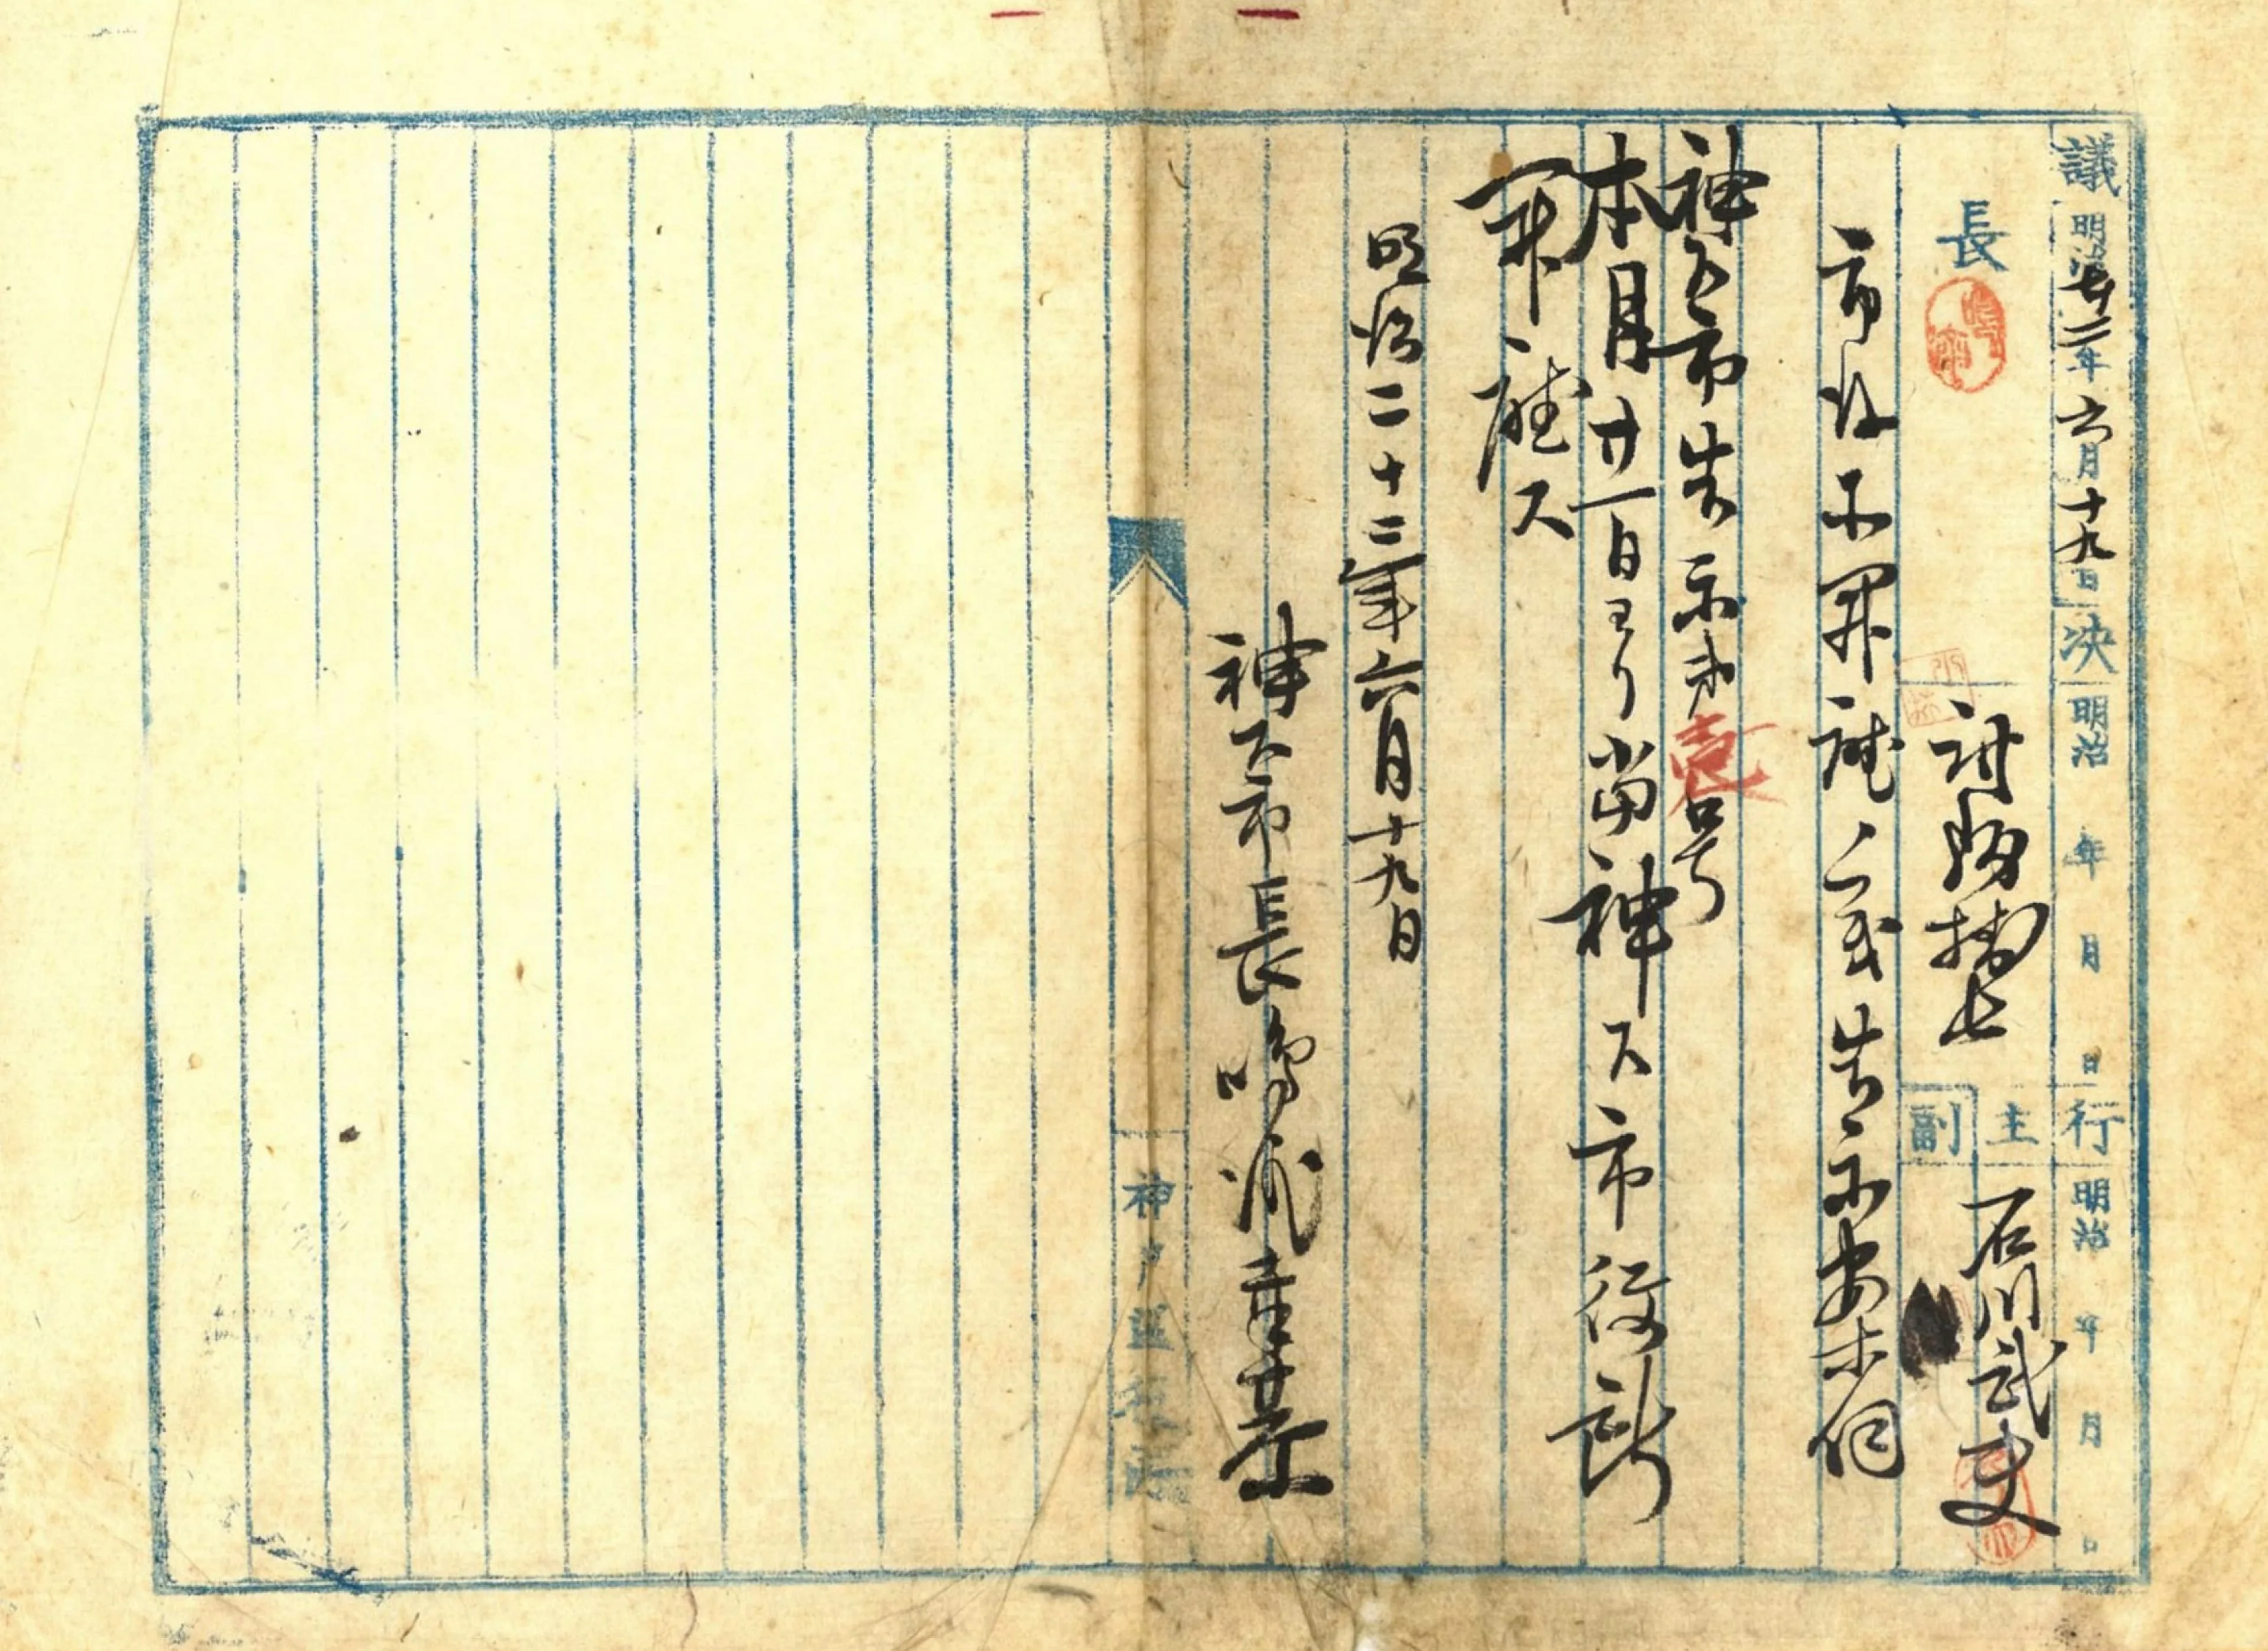 議 明治廿二年六月十九日 決 明治 年 月 日 行 明治 年 月 日
長 主 石川武史
副
市役所開庁ノ義告示案伺
神戸市告示第壱号
本月廿一日ヨリ当神戸市役所
開庁ス
明治二十二年六月十九日
神戸市長鳴滝幸恭
神戸区役所